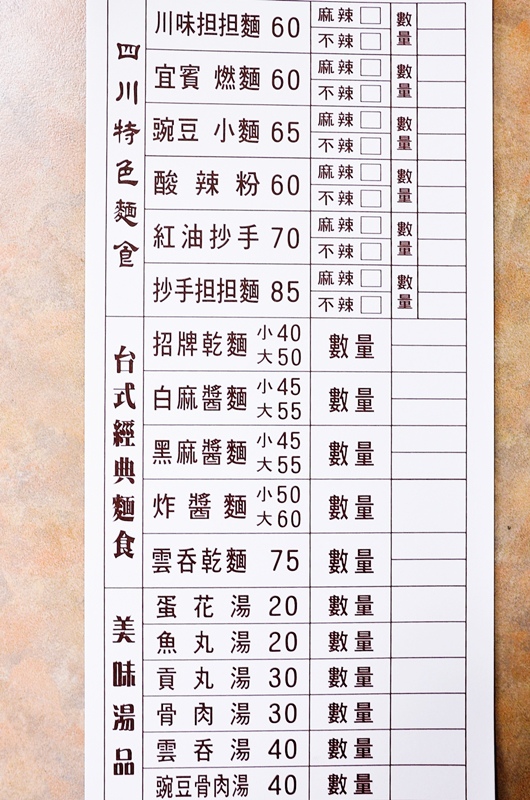 四川特色麵食
川味担担麵 60 麻辣□ 不辣□ 數量
宜賓 燃麵 60 麻辣□ 不辣□ 數量
豌豆 小麵 65 麻辣□ 不辣□ 數量
酸辣粉 60 麻辣□ 不辣□ 數量
紅油抄手 70 麻辣□ 不辣□ 數量
抄手担担麵 85 麻辣□ 不辣□ 數量
台式經典麵食
招牌乾麵 小40 大50 數量
白麻醬麵 小45 大55 數量
黑麻醬麵 小45 大55 數量
炸醬麵 小50 大60 數量
雲吞乾麵 75 數量
美味湯品
蛋花湯 20 數量
魚丸湯 20 數量
貢丸湯 30 數量
骨肉湯 30 數量
雲吞湯 40 數量
豌豆骨肉湯 40 數量